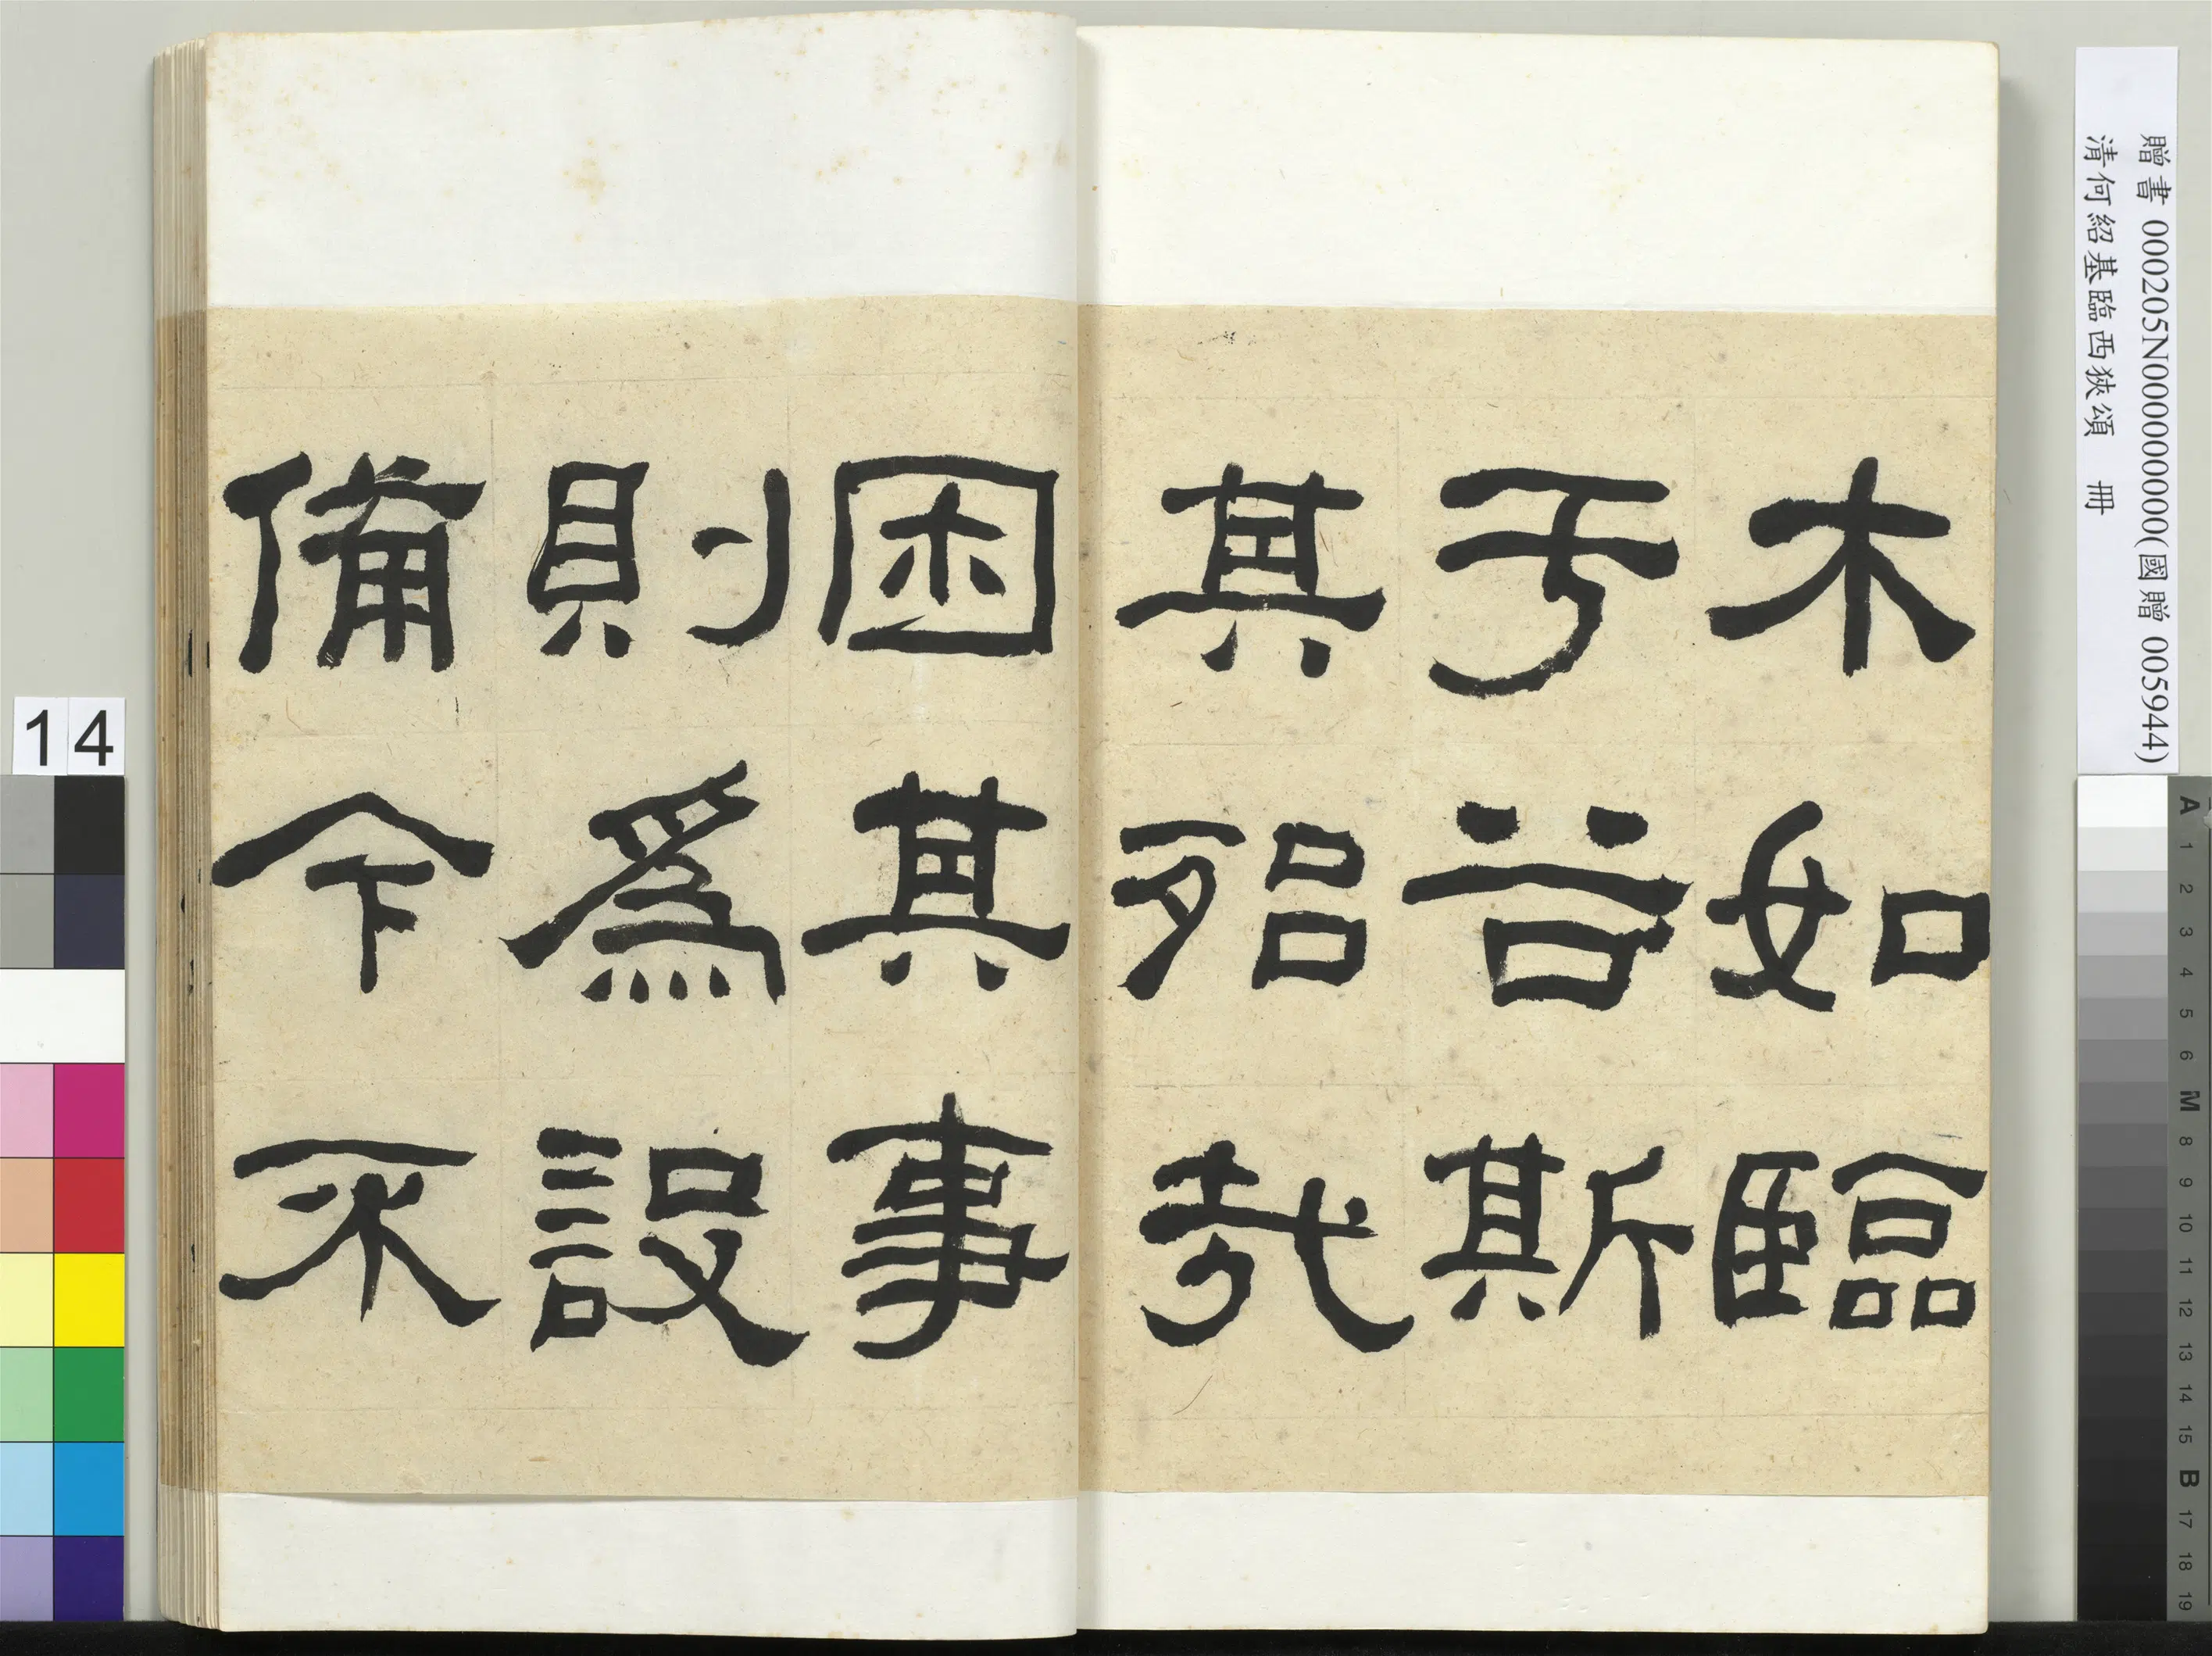 木如臨
于谷斯
其殆哉
困其事
則爲設
備今不
贈書 000205N000000000(國贈 005944)
清何紹基臨西狹頌 冊
14
A
1
2
3
4
5
6
M
8
9
10
11
12
13
14
15
B
17
18
19